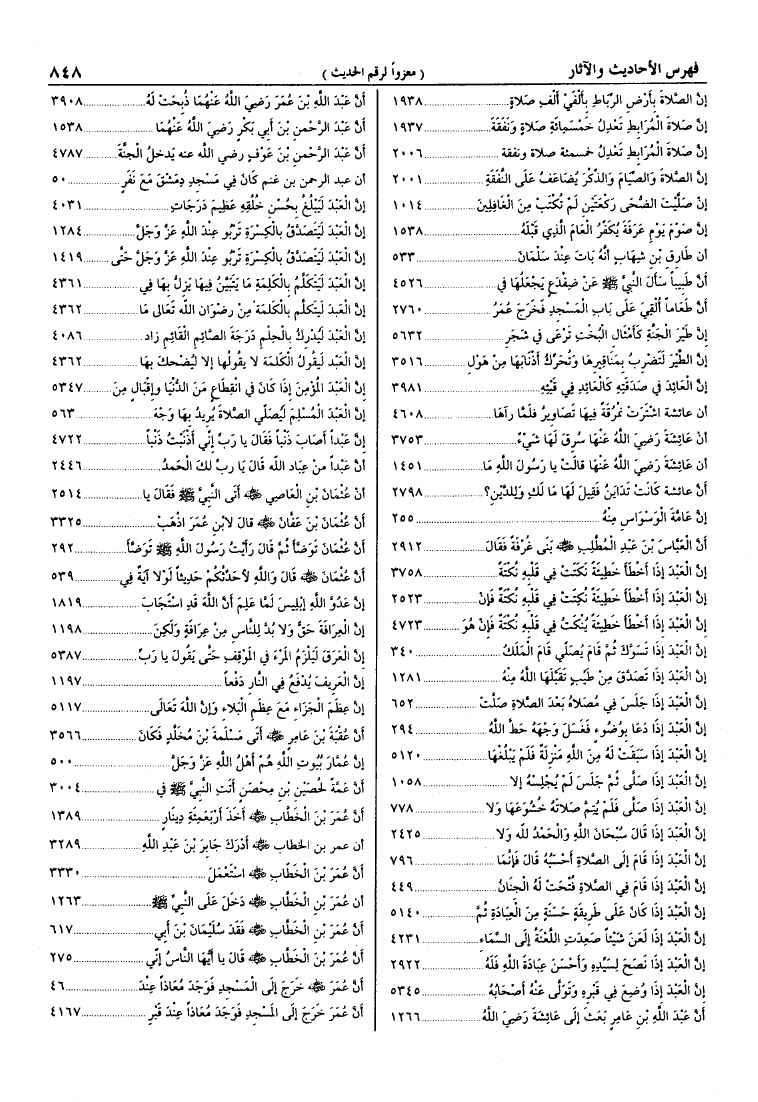 فهرس الأحاديث والآثار
( معزواً لرقم الحديث )
٨٤٨
إنّ الصَّلاةَ بِأَرْضِ الرِّبَاطِ بِأَلْفَيْ أَلْفِ صَلاةٍ ........ ١٩٣٨
إنّ صَلاةَ الْمُرَابِطِ تَعْدِلُ خَمْسَمِائَةِ صَلاةٍ وَنَفَقَةَ ........ ١٩٣٧
إنّ صَلاةَ الْمُرَابِطِ تَعْدِلُ خمسمئة صلاة ونفقة ........ ٢٠٠٦
إنّ الصَّلاةَ وَالصِّيَامَ وَالذِّكْرَ يُضَاعَفُ عَلَى النَّفَقَةِ ........ ٢٠٠١
إنْ صَلَّيْتَ الضُّحَى رَكْعَتَيْنِ لَمْ تُكْتَبْ مِنَ الْغَافِلِينَ ........ ١٠١٤
إنَّ صَوْمَ يَوْمِ عَرَفَةَ يُكَفِّرُ الْعَامَ الَّذِي قَبْلَهُ ........ ١٥٣٨
أن طَارِقَ بْنَ شِهَابٍ أَنَّهُ بَاتَ عِنْدَ سَلْمَانَ ........ ٥٣٣
أنَّ طَبِيباً سَأَلَ النَّبِيَّ ﷺ عَنْ ضِفْدَعٍ يَجْعَلُهَا فِي ........ ٤٥٢٦
أنَّ طَعَاماً أُلْقِيَ عَلَى بَابِ الْمَسْجِدِ فَخَرَجَ عُمَرُ ........ ٢٧٦٠
إنَّ طَيْرَ الْجَنَّةِ كَأَمْثَالِ الْبُخْتِ تَرْعَى فِي شَجَرِ ........ ٥٦٣٢
إنَّ الطَّيْرَ لَتَضْرِبُ بِمَنَاقِيرِهَا وَتُحَرِّكُ أَذْنَابَهَا مِنْ هَوْلِ ........ ٣٥١٦
إنَّ الْعَائِدَ فِي صَدَقَتِهِ كَالْعَائِدِ فِي قَيْئِهِ ........ ٣٩٨١
أن عائشة اشْتَرَتْ نُمْرُقَةً فِيهَا تَصَاوِيرُ فَلَمَّا رآهَا ........ ٤٦٠٨
أنَّ عَائِشَةَ رَضِيَ اللَّهُ عَنْهَا سُرِقَ لَهَا شَيْءٌ ........ ٣٧٥٣
أن عَائِشَةَ رَضِيَ اللَّهُ عَنْهَا قالَتْ يا رَسُولَ اللَّهِ مَا ........ ١٤٥١
أنَّ عائشة كَانَتْ تَدَايَنُ فَقِيلَ لَهَا مَا لَكِ وَلِلدَّيْنِ؟ ........ ٢٧٩٨
إنَّ عَامَّةَ الْوَسْوَاسِ مِنْهُ ........ ٢٥٥
أنَّ الْعَبَّاسَ بْنَ عَبْدِ الْمُطَّلِبِ ﷺ بَنَى غُرْفَةً فَقَالَ ........ ٢٩١٢
إنَّ الْعَبْدَ إذَا أَخْطَأَ خَطِيئَةً نَكَتَتْ فِي قَلْبِهِ نُكْتَةً ........ ٣٧٥٨
إنَّ الْعَبْدَ إذَا أَخْطَأَ خَطِيئَةً نُكِتَتْ فِي قَلْبِهِ نُكْتَةٌ فَإِنْ ........ ٢٥٢٣
إنَّ الْعَبْدَ إذَا أَخْطَأَ خَطِيئَةً يُنْكَتُ فِي قَلْبِهِ نُكْتَةٌ فَإِنْ هُوَ ........ ٤٧٢٣
إنَّ الْعَبْدَ إذَا تَسَوَّكَ ثُمَّ قَامَ يُصَلِّي قَامَ الْمَلَكُ ........ ٣٤٠
إنَّ الْعَبْدَ إذَا تَصَدَّقَ مِنْ طَيِّبٍ تَقَبَّلَهَا اللَّهُ مِنْهُ ........ ١٢٨١
إنَّ الْعَبْدَ إذَا جَلَسَ فِي مُصَلاهُ بَعْدَ الصَّلاةِ صَلَّتْ ........ ٦٥٢
إنَّ الْعَبْدَ إذَا دَعَا بِوُضُوءٍ فَغَسَلَ وَجْهَهُ حَطَّ اللَّهُ ........ ٢٩٤
إنَّ الْعَبْدَ إذَا سَبَقَتْ لَهُ مِنَ اللَّهِ مَنْزِلَةٌ فَلَمْ يَبْلُغْهَا ........ ٥١٢٠
إنَّ الْعَبْدَ إذَا صَلَّى ثُمَّ جَلَسَ لَمْ يُجْلِسْهُ إلا ........ ١٠٥٨
إنَّ الْعَبْدَ إذَا صَلَّى فَلَمْ يُتِمَّ صَلاتَهُ خُشُوعَهَا وَلا ........ ٧٧٨
إنَّ الْعَبْدَ إذَا قَالَ سُبْحَانَ اللَّهِ وَالْحَمْدُ للَّهِ وَلا ........ ٢٤٢٥
إنَّ الْعَبْدَ إذَا قَامَ إلَى الصَّلاةِ أَحْسَبُهُ قَالَ فَإِنَّمَا ........ ٧٩٦
إنَّ الْعَبْدَ إذَا قَامَ فِي الصَّلاةِ فُتِحَتْ لَهُ الْجِنَانُ ........ ٤٤٩
إنَّ الْعَبْدَ إذَا كَانَ عَلَى طَرِيقَةٍ حَسَنَةٍ مِنَ الْعِبَادَةِ ثُمَّ ........ ٥١٤٠
إنَّ الْعَبْدَ إذَا لَعَنَ شَيْئاً صَعِدَتِ اللَّعْنَةُ إلَى السَّمَاءِ ........ ٤٢٣١
إنَّ الْعَبْدَ إذَا نَصَحَ لِسَيِّدِهِ وَأَحْسَنَ عِبَادَةَ اللَّهِ فَلَهُ ........ ٢٩٢٢
إنَّ الْعَبْدَ إذَا وُضِعَ فِي قَبْرِهِ وَتَوَلَّى عَنْهُ أَصْحَابُهُ ........ ٥٣٤٥
أنَّ عَبْدَ اللَّهِ بْنِ عَامِرٍ بَعَثَ إلَى عَائِشَةَ رَضِيَ اللَّهُ ........ ١٢٦٦
أنَّ عَبْدَ اللَّهِ بْنَ عُمَرَ رَضِيَ اللَّهُ عَنْهُمَا ذُبِحَتْ لَهُ ........ ٣٩٠٨
أنَّ عَبْدَ الرَّحْمنِ بْنَ أَبِي بَكْرٍ رَضِيَ اللَّهُ عَنْهُمَا ........ ١٥٣٨
أنَّ عَبْدَ الرَّحْمنِ بْنَ عَوْفٍ رضي اللَّه عنه يَدخلُ الْجنَّةَ ........ ٤٧٨٧
أن عبد الرحمن بن غنم كَانَ فِي مَسْجِدِ دِمَشْقَ مَعَ نَفَرٍ ........ ٥٠
إنَّ الْعَبْدَ لَيَبْلُغُ بِحُسْنِ خُلُقِهِ عَظِيمَ دَرَجَاتِ ........ ٤٠٣١
إنَّ الْعَبْدَ لَيَتَصَدَّقُ بِالْكِسْرَةِ تَرْبُو عِنْدَ اللَّهِ عَزَّ وَجَلَّ ........ ١٢٨٤
إنَّ الْعَبْدَ لَيَتَصَدَّقُ بِالْكِسْرَةِ تَرْبُو عِنْدَ اللَّهِ عَزَّ وَجَلَّ حَتَّى ........ ١٤١٩
إنَّ الْعَبْدَ لَيَتَكَلَّمُ بِالْكَلِمَةِ مَا يَتَبَيَّنُ فِيهَا يَزِلُّ بِهَا فِي ........ ٤٣٦١
إنَّ الْعَبْدَ لَيَتَكَلَّم بِالْكَلِمَةِ مِنْ رِضْوَانِ اللَّه تَعَالَى مَا ........ ٤٣٦٢
إنَّ الْعَبْدَ لَيُدْرِكُ بِالْحِلْمِ دَرَجَةَ الصَّائِمِ الْقَائِمِ زاد ........ ٤٠٨٦
إنَّ الْعَبْد لَيَقُولُ الْكَلِمَةَ لا يقُولُها إلا لِيُضْحكَ بِهَا ........ ٤٣٦٢
إنَّ الْعَبْدَ الْمُؤْمِنَ إذَا كَانَ فِي انْقِطَاعٍ مِنَ الدُّنْيَا وَإِقْبَالٍ مِنَ ........ ٥٣٤٧
إنَّ الْعَبْدَ الْمُسْلِمَ لَيُصَلِّي الصَّلاةَ يُرِيدُ بِهَا وَجْهَ ........ ٥٦٣
إنَّ عَبْداً أصَابَ ذَنْباً فَقَالَ يا رَبِّ إِنِّي أَذْنَبْتُ ذَنْباً ........ ٤٧٢٢
أنَّ عَبْداً منْ عِبَاد اللَّه قَالَ يَا رَبِّ لكَ الْحَمْدُ ........ ٢٤٤٦
أنَّ عُثْمَانَ بْنَ الْعَاصِي ﷺ أَتَى النَّبِيَّ ﷺ فَقَالَ يا ........ ٢٥١٤
أنَّ عُثْمَانَ بْنَ عَفَّانَ ﷺ قالَ لابْنِ عُمَرَ اذْهَبْ ........ ٣٣٢٥
أنَّ عُثْمَانَ تَوَضَّأَ ثُمَّ قَالَ رَأَيْتُ رَسُولَ اللَّهِ ﷺ تَوَضَّأَ ........ ٢٩٢
أنَّ عُثْمَانَ ﷺ قَالَ وَاللَّهِ لأُحَدِّثَنَّكُمْ حَدِيثاً لَوْلا آيَةٌ فِي ........ ٥٣٩
إنَّ عَدُوَّ اللَّهِ إبْلِيسَ لَمَّا عَلِمَ أَنَّ اللَّهَ قَدِ اسْتَجَابَ ........ ١٨١٩
إنَّ الْعِرَافَةَ حَقٌّ وَلا بُدَّ لِلنَّاسِ مِنْ عِرَافَةٍ وَلَكِنَّ ........ ١١٩٨
إنَّ الْعَرَقَ لَيَلْزَمُ الْمَرْءَ فِي الْمَوْقِفِ حَتَّى يَقُولَ يا رَبِّ ........ ٥٣٨٧
إنَّ الْعَرِيفَ يُدْفَعُ فِي النَّارِ دَفْعاً ........ ١١٩٧
إنَّ عِظَمَ الْجَزَاءِ مَعَ عِظَمِ الْبَلاءِ وَإِنَّ اللَّهَ تَعَالَى ........ ٥١١٧
أنَّ عُقْبَةَ بْنَ عَامِرٍ ﷺ أَتَى مَسْلَمَةَ بْنَ مُخَلَّدٍ فَكَانَ ........ ٣٥٦٦
إنَّ عُمَّارَ بُيُوتِ اللَّهِ هُمْ أَهْلُ اللَّهِ عَزَّ وَجَلَّ ........ ٥٠٠
أنَّ عَمَّةً لِحُصَيْنِ بْنِ مِحْصَنٍ أَتَتِ النَّبِيَّ ﷺ فِي ........ ٣٠٠٤
أنَّ عُمَرَ بْنَ الْخَطَّابِ ﷺ أَخَذَ أَرْبَعَمِئَةِ دِينَارٍ ........ ١٣٨٩
أن عمر بن الخطاب ﷺ أَدْرَكَ جَابِرَ بْنَ عَبْدِ اللَّهِ ........ ٣٢٨٩
أنَّ عُمَرَ بْنَ الْخَطَّابِ ﷺ اسْتَعْمَلَ ........ ٣٣٣٠
أن عُمَرَ بْنَ الْخَطَّابِ ﷺ دَخَلَ عَلَى النَّبِيِّ ﷺ ........ ١٢٦٣
أنَّ عُمَرَ بْنَ الْخَطَّابِ ﷺ فَقَدَ سُلَيْمَانَ بْنَ أَبِي ........ ٦١٧
أنَّ عُمَرَ بْنَ الْخَطَّابِ ﷺ قَالَ يا أَيُّهَا النَّاسُ إنِّي ........ ٢٧٥
أنَّ عُمَرَ ﷺ خَرَجَ إلَى الْمَسْجِدِ فَوَجَدَ مُعَاذاً عِنْدَ ........ ٤٦
أنَّ عُمَرَ خَرَجَ إلَى الْمَسْجِدِ فَوَجَدَ مُعَاذاً عِنْدَ قَبْرِ ........ ٤١٦٧